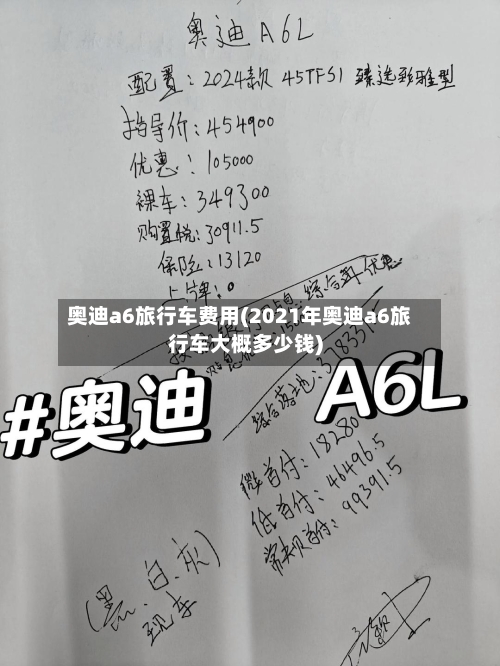 奥迪A6L
配置:2024款 45TFSI 臻选致雅型
指导价:454900
优惠:105000
裸车:349300
购置税:30911.5
保险:13120
上牌:0
奥迪a6旅行车费用(2021年奥迪a6旅
行车大概多少钱)
综合落地:378331.5
#奥迪 A6L
微首付:18280
低首付:46496.5
常规首付:99391.5
(黑、白、灰)
现车